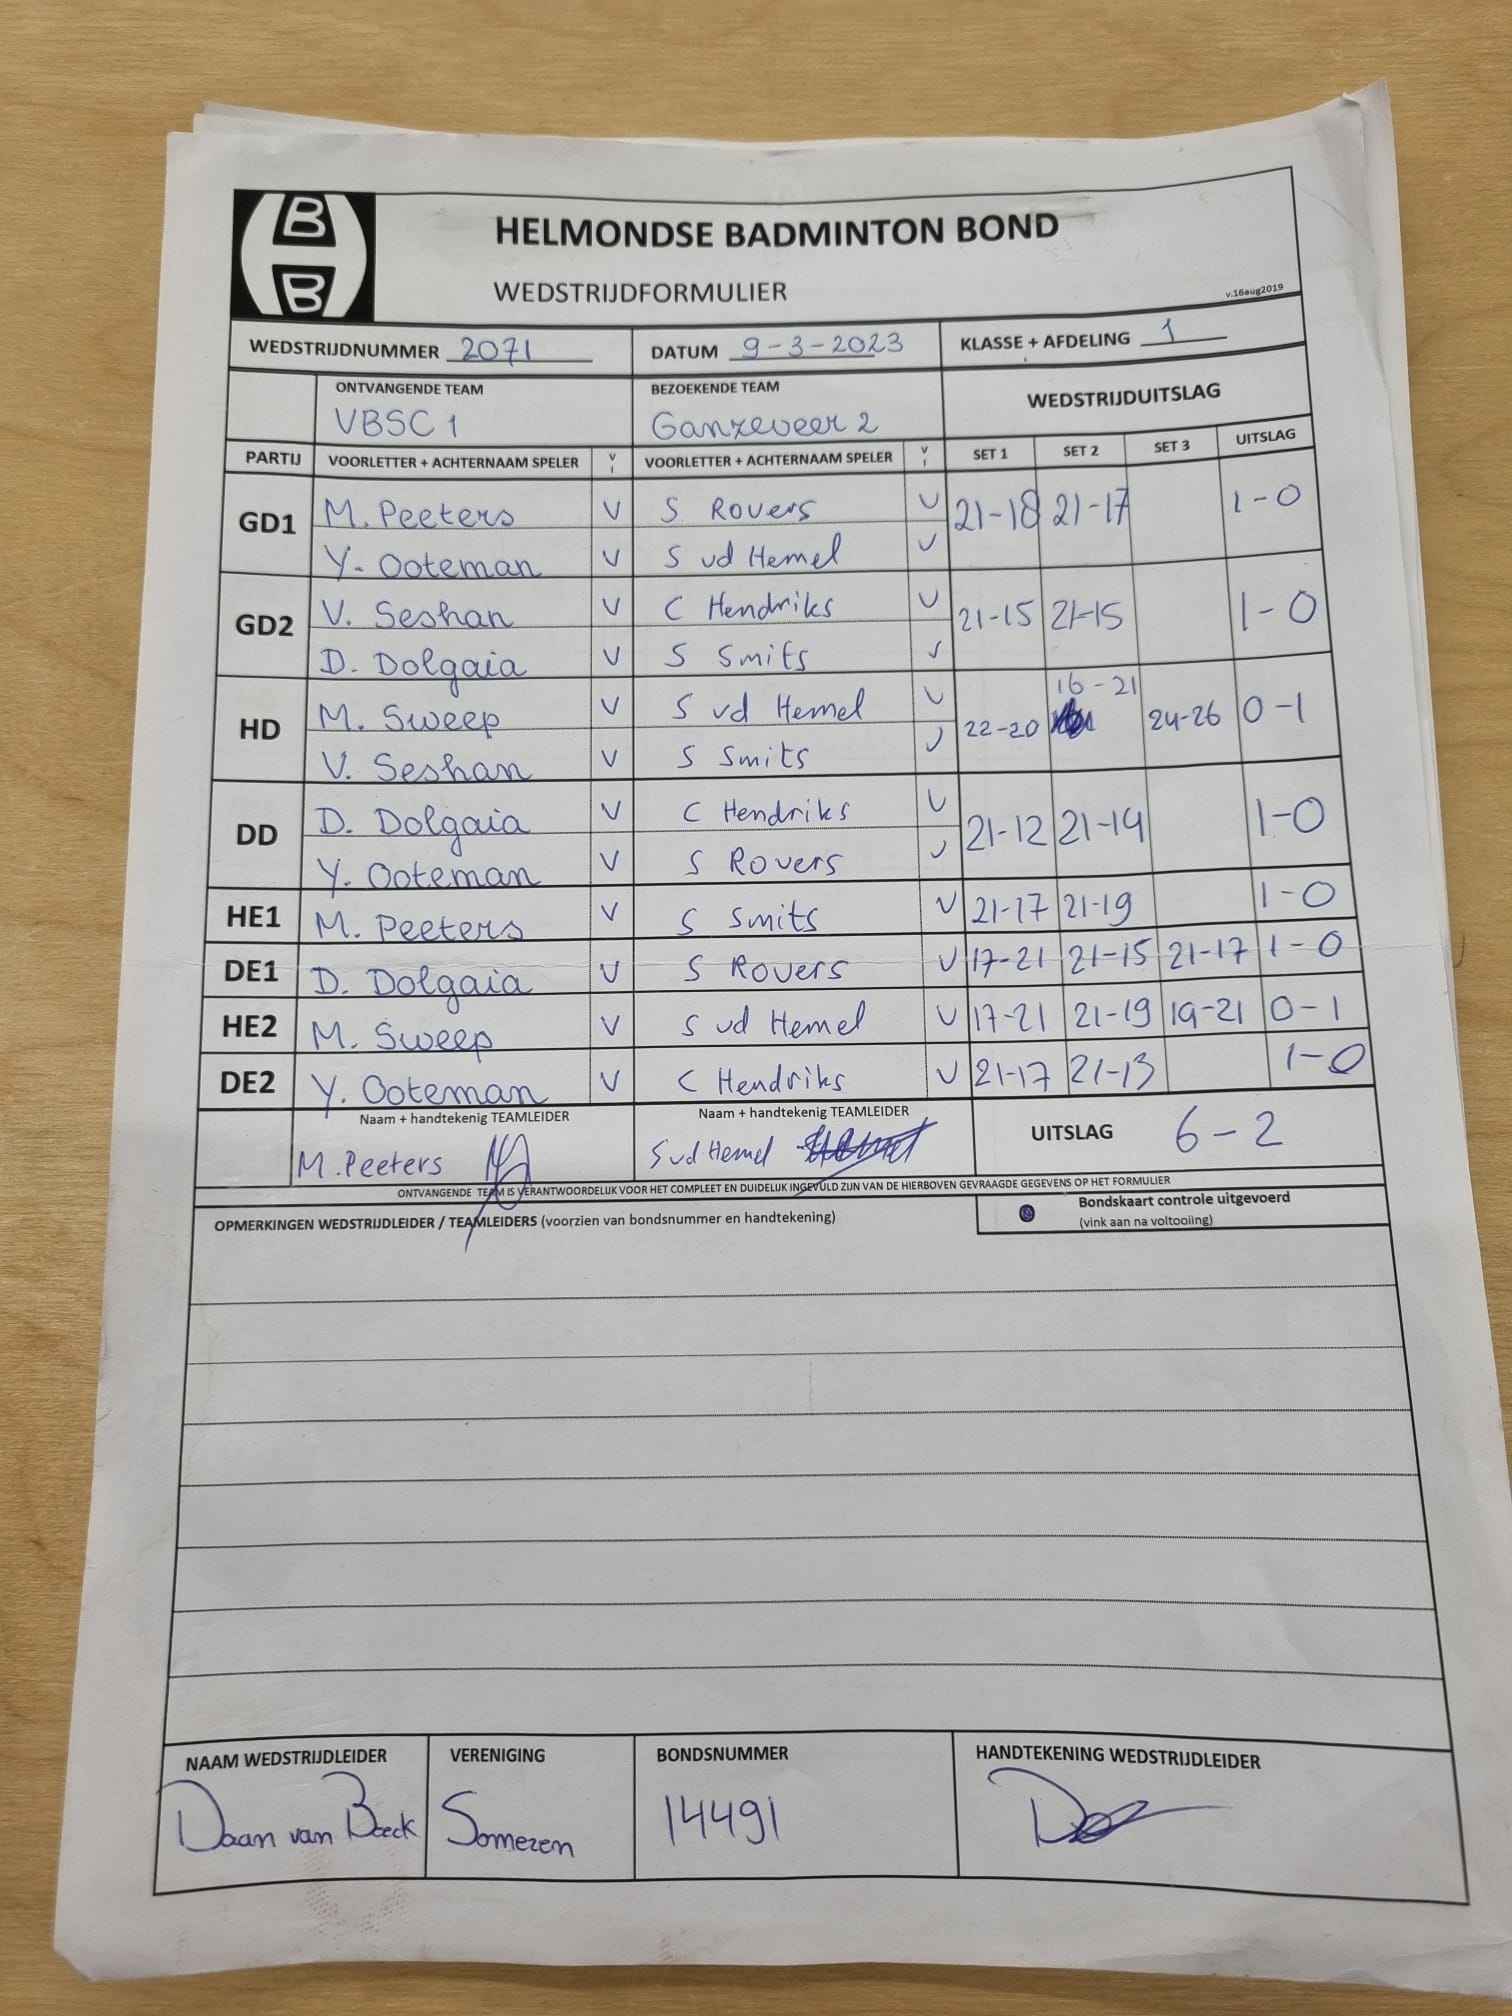 B
B
HELMONDSE BADMINTON BOND
WEDSTRIJDFORMULIER
v.16aug2019
WEDSTRIJDNUMMER 2071 DATUM 9-3-2023 KLASSE + AFDELING 1
ONTVANGENDE TEAM BEZOEKENDE TEAM WEDSTRIJDUITSLAG
VBSC 1 Ganzeveer 2
PARTIJ VOORLETTER + ACHTERNAAM SPELER V I VOORLETTER + ACHTERNAAM SPELER V I SET 1 SET 2 SET 3 UITSLAG
GD1 M. Peeters V S Rovers V 21-18 21-17 1-0
Y. Ooteman V S vd Hemel V
GD2 V. Seshan V C Hendriks V 21-15 21-15 1-0
D. Dolgaia V S Smits V
HD M. Sweep V S vd Hemel V 22-20 16-21 24-26 0-1
V. Seshan V S Smits V
DD D. Dolgaia V C Hendriks V 21-12 21-14 1-0
Y. Ooteman V S Rovers V
HE1 M. Peeters V S Smits V 21-17 21-19 1-0
DE1 D. Dolgaia V S Rovers V 17-21 21-15 21-17 1-0
HE2 M. Sweep V S vd Hemel V 17-21 21-19 19-21 0-1
DE2 Y. Ooteman V C Hendriks V 21-17 21-13 1-0
Naam + handtekenig TEAMLEIDER Naam + handtekenig TEAMLEIDER UITSLAG 6-2
M. Peeters S vd Hemel
ONTVANGENDE TEAM IS VERANTWOORDELIJK VOOR HET COMPLEET EN DUIDELIJK INGEVULD ZIJN VAN DE HIERBOVEN GEVRAAGDE GEGEVENS OP HET FORMULIER
OPMERKINGEN WEDSTRIJDLEIDER / TEAMLEIDERS (voorzien van bondsnummer en handtekening)
Bondskaart controle uitgevoerd
(vink aan na voltooiing)
NAAM WEDSTRIJDLEIDER VERENIGING BONDSNUMMER HANDTEKENING WEDSTRIJDLEIDER
Daan van Someren 14491